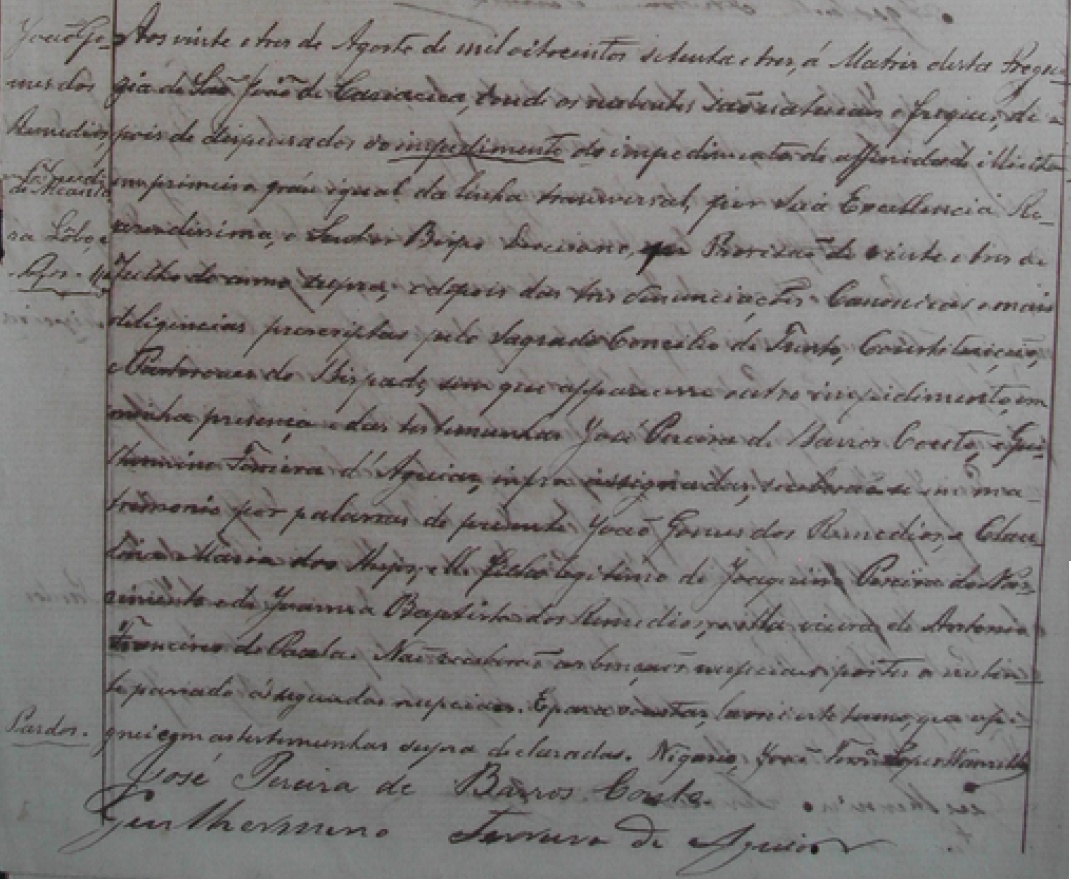 João Go-
mes dos
Remedios
Pardos.
Aos vinte e tres de Agosto de mil oitocentos setenta e tres, á Matriz desta Fregue-
zia de São João de Cariacica, donde os nubentes são naturaes e freguezes, de-
pois de dispensados do impedimento do impedimento de affinidade illicita
em primeiro gráu igual da linha transversal, por Sua Excellencia Re-
verendissima, o Senhor Bispo Diocesano, por Provizão de vinte e tres de
Julho do anno supra, e depois das tres denunciações Canonicas e mais
diligencias prescriptas pelo Sagrado Concilio de Trento, Constituição,
e Pastoraes do Bispado, sem que apparecesse outro impedimento, em
minha presença e das testemunhas José Pereira de Barros Couto, e Gui-
lhermino Ferreira d'Aguiar, infra assignadas, receberão-se em ma-
trimonio por palavras de presente João Gomes dos Remedios, e Clau-
dina Maria dos Anjos, elle filho legitimo de Joaquim Pereira do Nas-
cimento e de Joanna Baptista dos Remedios, e ella viuva de Antonio
Francisco de Paula. Não receberão as bençãos nupciaes por ter a nuben-
te passado a segundas nupcias. E para constar, lavrei este termo, que assi-
gnei com as testemunhas supra declaradas. Vigario, João
José Pereira de Barros Couto
Guilhermino Ferreira de Aguiar